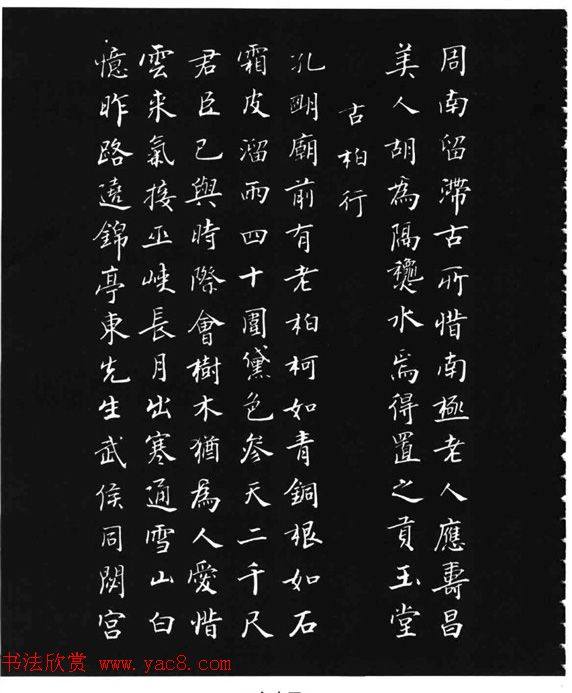 周南留滯古所惜南極老人應壽昌
美人胡為隔龝水焉得置之貢玉堂
古柏行
孔明廟前有老柏柯如青銅根如石
霜皮溜雨四十圍黛色參天二千尺
君臣已與時際會樹木猶為人愛惜
雲來氣接巫峽長月出寒通雪山白
憶昨路遶錦亭東先生武侯同閟宮
书法欣赏 www.yac8.com